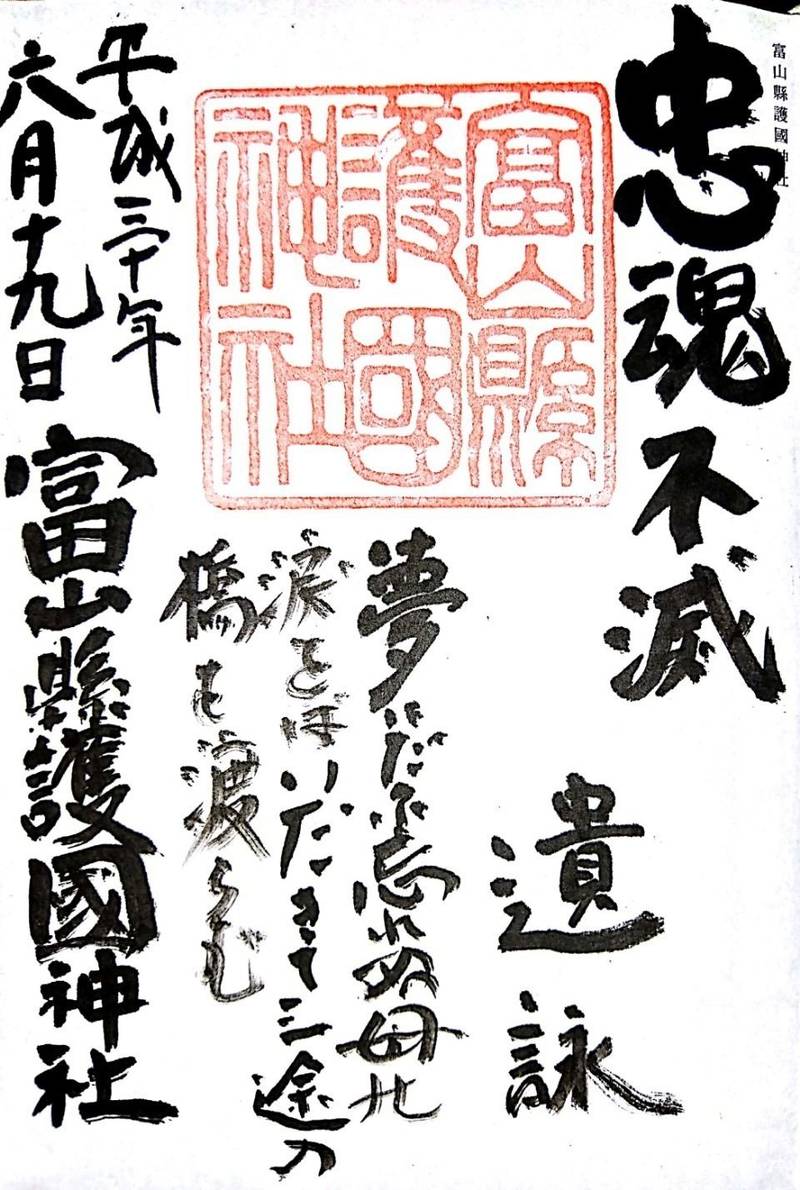 富山縣護國神社
忠魂不滅
富山縣
護國
神社
遺詠
夢だに忘れぬ母の
涙をばいだきて三途の
橋を渡らむ
平成三十年
六月十九日
富山縣護國神社